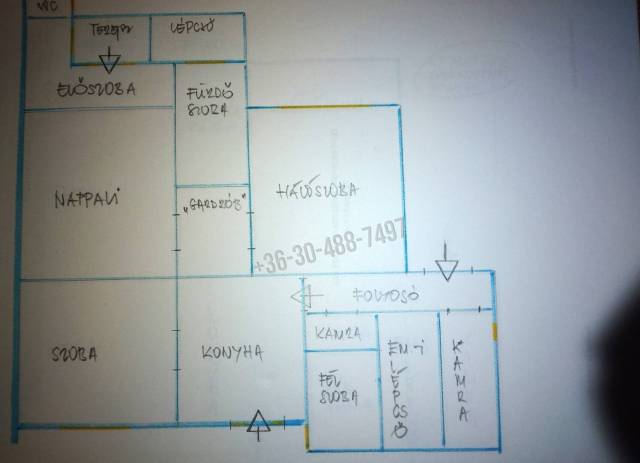 WC
TERASZ
LÉPCSŐ
ELŐSZOBA
FÜRDŐ
SZOBA
NAPPALI
"GARDRÓB"
HÁLÓSZOBA
+36-30-488-7497
FOLYOSÓ
SZOBA
KONYHA
KAMRA
FÉL
SZOBA
EM-I
LÉPCSŐ
KAMRA